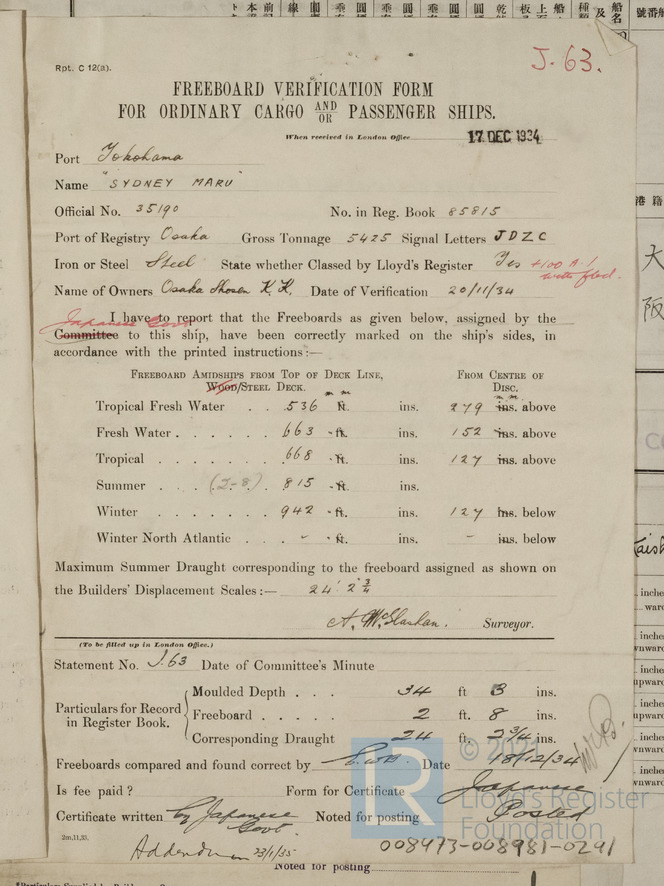 J.63.
Rpt. C 12(a).
FREEBOARD VERIFICATION FORM
FOR ORDINARY CARGO AND/OR PASSENGER SHIPS.
When received in London Office 17 DEC 1934
Port Yokohama
Name "SYDNEY MARU"
Official No. 35190 No. in Reg. Book 85815
Port of Registry Osaka Gross Tonnage 5425 Signal Letters JDZC
Iron or Steel Steel State whether Classed by Lloyd's Register Yes +100 A1
with fbd.
Name of Owners Osaka Shosen K.K. Date of Verification 20/11/34
I have to report that the Freeboards as given below, assigned by the
Japanese Govt
Committee to this ship, have been correctly marked on the ship's sides, in
accordance with the printed instructions:—
FREEBOARD AMIDSHIPS FROM TOP OF DECK LINE, FROM CENTRE OF
WOOD/STEEL DECK. DISC.
m m m.m.
Tropical Fresh Water . . 536 ft. ins. 279 ins. above
Fresh Water . . . . . . 663 ft. ins. 152 ins. above
Tropical . . . . . . . 668 ft. ins. 127 ins. above
Summer . . . (2-8) . 815 ft. ins.
Winter . . . . . . . 942 ft. ins. 127 ins. below
Winter North Atlantic . . - ft. ins. - ins. below
Maximum Summer Draught corresponding to the freeboard assigned as shown on
the Builders' Displacement Scales:— 24' 2 3/4
A. McGlashan. Surveyor.
(To be filled up in London Office.)
Statement No. J.63 Date of Committee's Minute
Particulars for Record in Register Book.
Moulded Depth . . . 34 ft 3 ins.
Freeboard . . . . . 2 ft. 8 ins.
Corresponding Draught 24 ft. 2 3/4 ins.
Freeboards compared and found correct by Date 18/12/34
Is fee paid? Form for Certificate Japanese
Certificate written by Japanese Govt. Noted for posting Posted
2m,11,33.
Addendum 23/1/35
© 2021
Lloyd's Register
Foundation
008473-008981-0241
Noted for posting